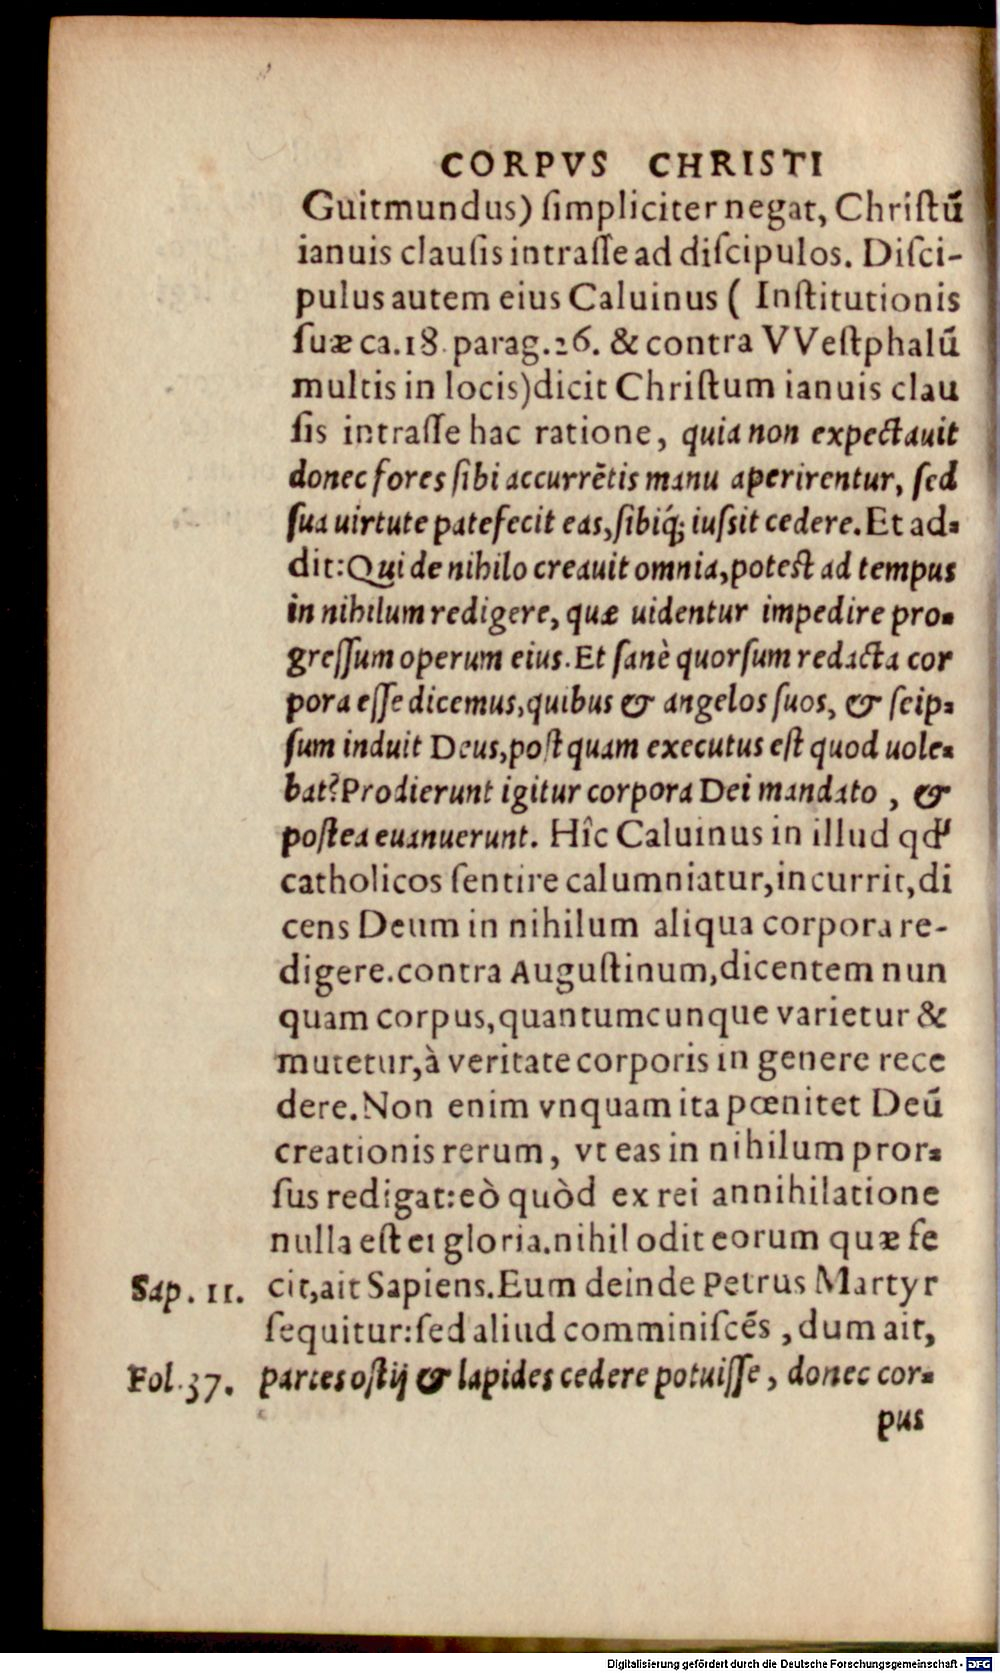 CORPVS CHRISTI
Guitmundus) ſimpliciter negat, Chriſtū
ianuis clauſis intraſſe ad diſcipulos. Diſci-
pulus autem eius Caluinus ( Inſtitutionis
ſuæ ca.18. parag.26. & contra VVeſtphalū
multis in locis)dicit Chriſtum ianuis clau
ſis intraſſe hac ratione, quia non expectauit
donec fores ſibi accurrẽtis manu aperirentur, ſed
ſua uirtute patefecit eas, ſibiq́; iuſsit cedere. Et ad-
dit: Qui de nihilo creauit omnia, poteſt ad tempus
in nihilum redigere, quæ uidentur impedire pro-
greſſum operum eius. Et ſanè quorſum redacta cor
pora eſſe dicemus, quibus & angelos ſuos, & ſeip-
ſum induit Deus, poſt quam executus eſt quod uole-
bat? Prodierunt igitur corpora Dei mandato , &
poſtea euanuerunt. Hîc Caluinus in illud qd'
catholicos ſentire calumniatur, incurrit, di
cens Deum in nihilum aliqua corpora re-
digere. contra Auguſtinum, dicentem nun
quam corpus, quantumcunque varietur &
mutetur, à veritate corporis in genere rece
dere. Non enim vnquam ita pœnitet Deū
creationis rerum, vt eas in nihilum pror-
ſus redigat: eò quòd ex rei annihilatione
nulla eſt ei gloria. nihil odit eorum quæ fe
Sap. 11. cit, ait Sapiens. Eum deinde Petrus Martyr
ſequitur: ſed aliud comminiſcẽs , dum ait,
Fol. 37. partes oſtij & lapides cedere potuiſſe, donec cor-
pus
Digitalisierung gefördert durch die Deutsche Forschungsgemeinschaft - DFG